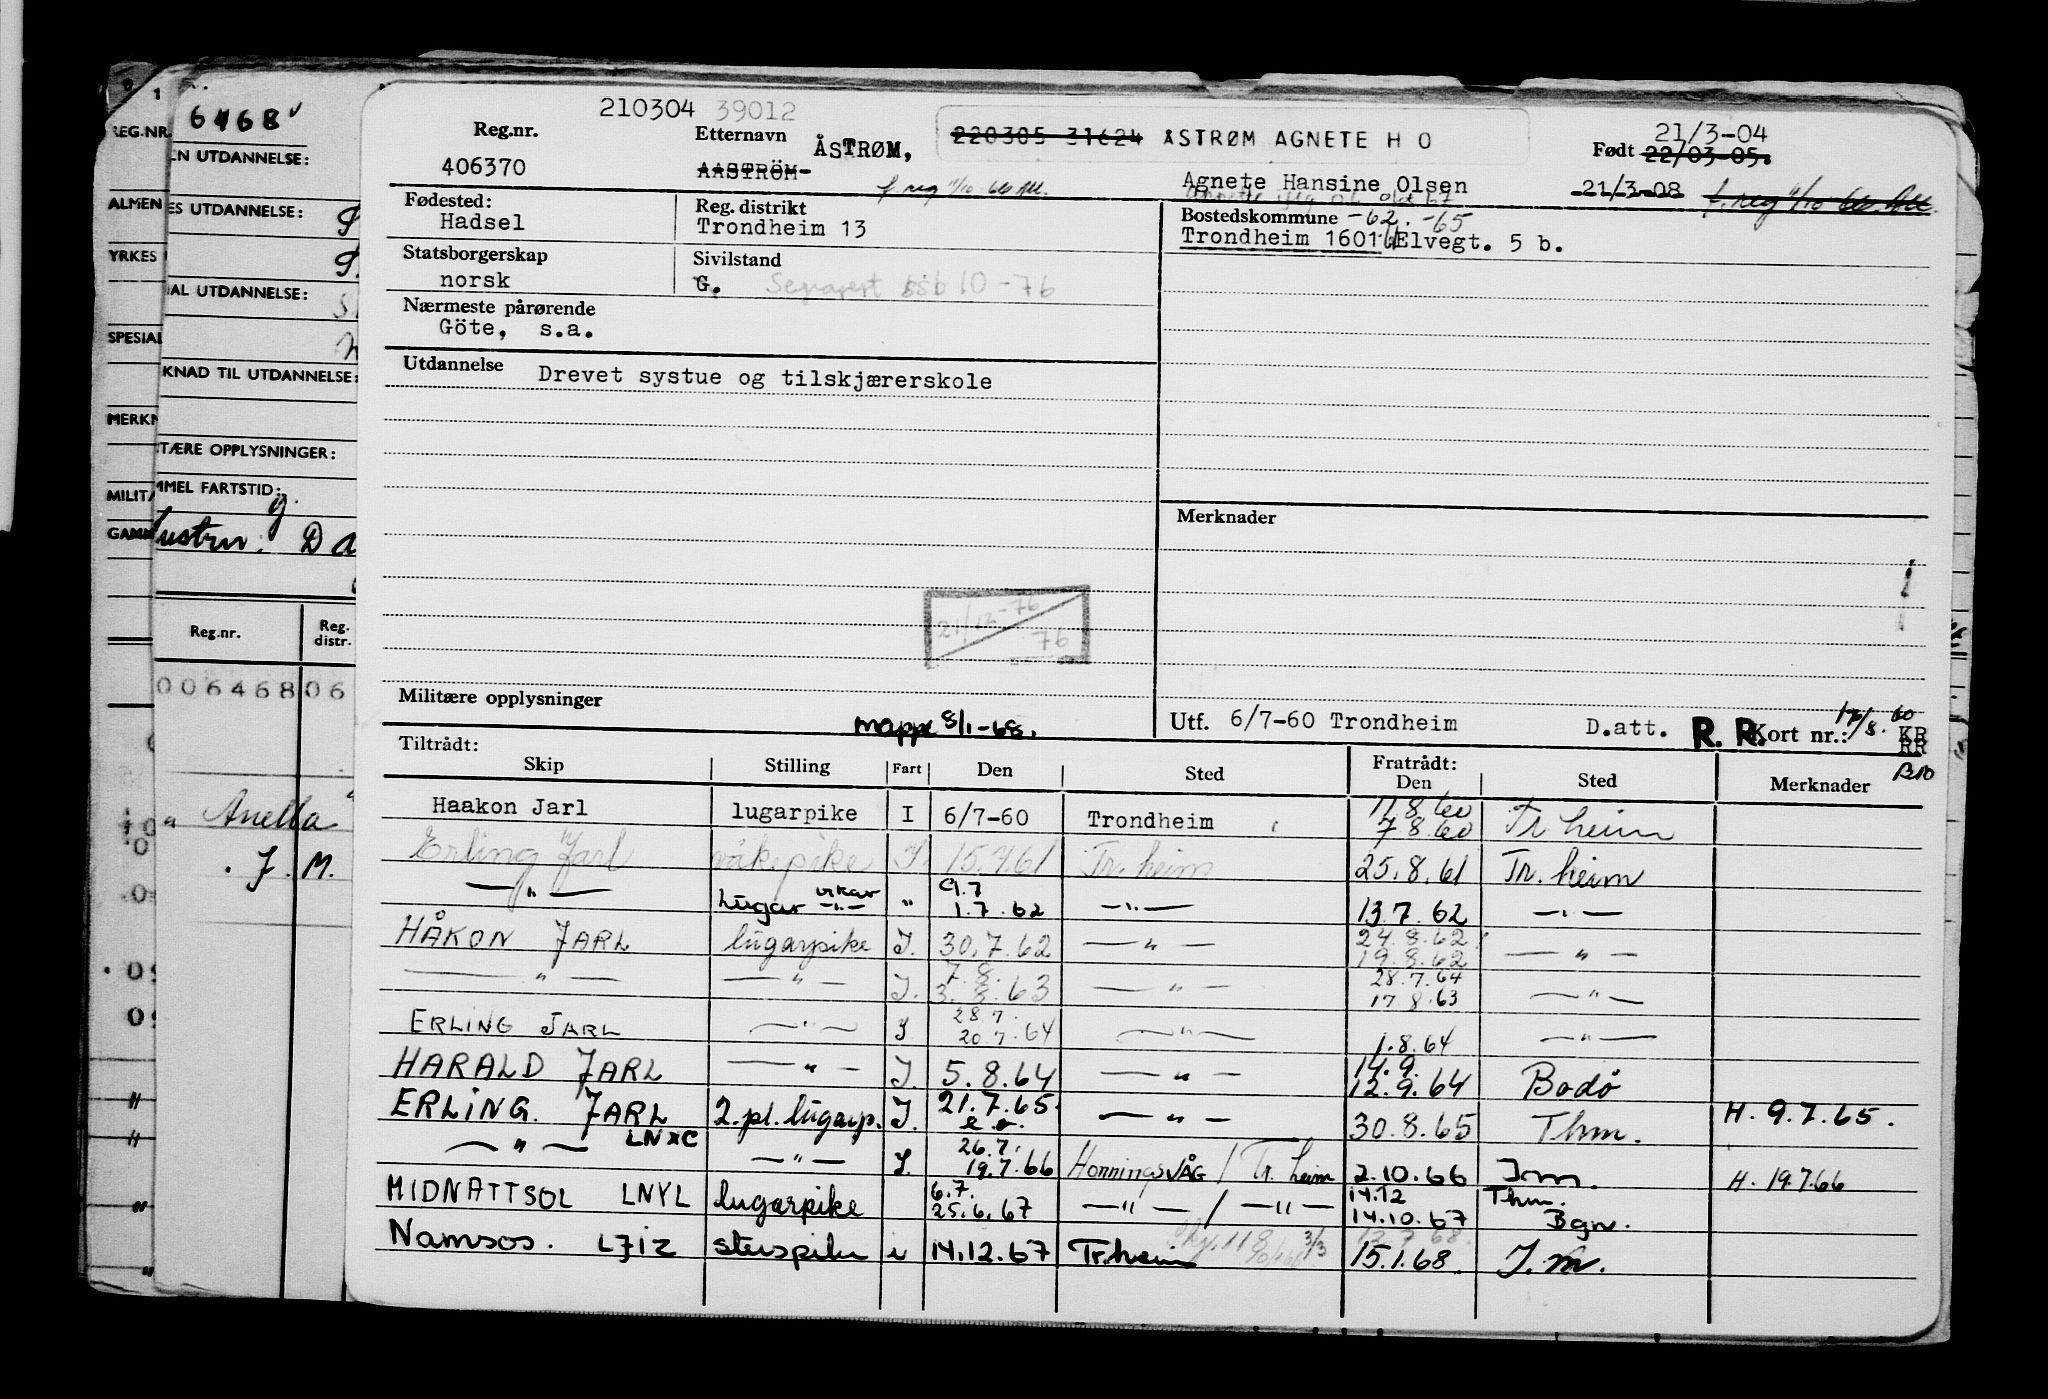 210304 39012
Reg.nr. 406370
Etternavn AASTRÖM ÅSTRØM,
220305 31624 ÅSTRØM AGNETE H O
Agnete Hansine Olsen
21/3-04
Født 22/03-05.
21/3-08
Fødested: Hadsel
Reg. distrikt Trondheim 13
Bostedskommune -62. -65
Trondheim 1601 Elvegt. 5 b.
Statsborgerskap norsk
Sivilstand G. Separert ssb 10-76
Nærmeste pårørende
Göte, s.a.
Utdannelse Drevet systue og tilskjærerskole
Merknader
21/12-76
76
Militære opplysninger
mappe 8/1-68.
Utf. 6/7-60 Trondheim D.att. R. R. Kort nr.: 17/8. 60 KR
RR
Tiltrådt: Fratrådt:
Skip Stilling Fart Den Sted Den Sted Merknader
Haakon Jarl lugarpike I 6/7-60 Trondheim 11.8.60 7 8.60 Tr heim
Erling Jarl våkepike I. 15.7.61 Tr. heim 25.8.61 Tr. heim
—"— Lugar vikar —"— " 9.7 1.7.62 —"— 13.7.62 —"—
HÅKON JARL lugarpike I. 30.7.62 —"— 24.8.62 19.8.62 —"—
—"— —"— I. 7.8. 3.8.63 —"— 28.7.64 17 8.63 —"—
ERLING JARL —"— I 28 7. 20 7.64 —"— 1.8.64 —"—
HARALD JARL —"— I. 5.8.64 —"— 14.9. 12.9.64 Bodö
ERLING. JARL 2.pl. lugarp. I. 21.7.65. —"— 30.8.65 Thm. H. 9.7.65.
—"— LNXC —"— I. 26.7. 19.7.66 HonningsVÅG / Tr. heim 2.10.66 J.m. H. 19.7.66
MIDNATTSOL LNYL lugarpike 6.7. 25.6.67 —"— / —"— 14.12 14.10.67 Thm. Bgn.
Namsos. LJIZ i 14.12.67 Tr.heim 3/3 15.1.68. J.m.
6468
EN UTDANNELSE:
ES UTDANNELSE:
AL UTDANNELSE:
KNAD TIL UTDANNELSE:
TÆRE OPPLYSNINGER:
MMEL FARTSTID:
Reg.nr. Reg. distr.
006468 06
J. M.
REG.NR.
ALMEN
YRKES
SPESIAL
MERKN
MILITÆ
GAMM